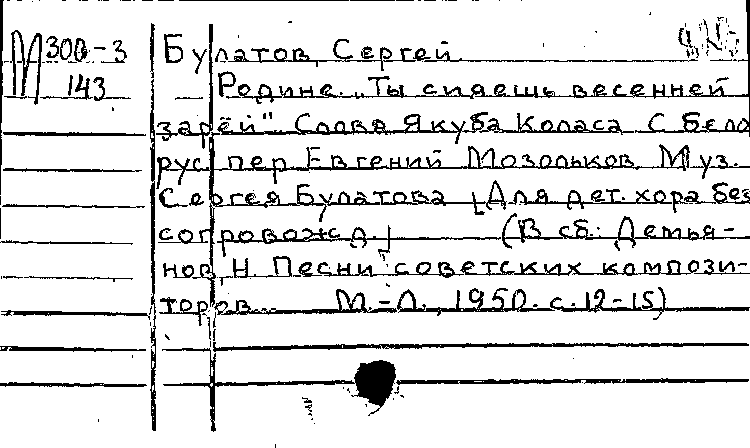 М 300-3
143
Булатов, Сергей
Родине. „Ты сияешь весенней
зарёй". Слова Якуба Коласа С бело
рус. пер Евгений Мозольков. Муз.
Сергея Булатова [Для дет. хора без
сопровожд.] (В сб.: Демья-
нов, Н. Песни советских компози-
торов... М.-Л., 1950. с. 12-15)